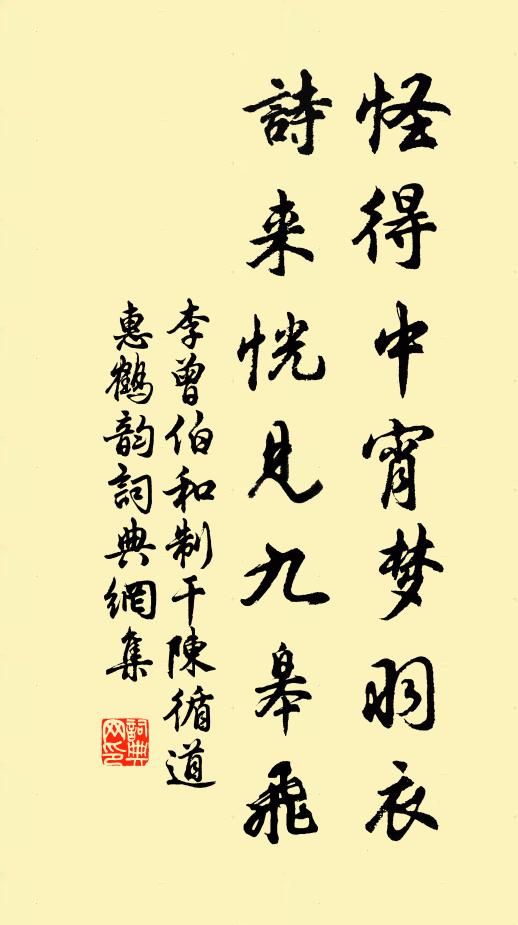 怪得中宵梦羽衣
詩来恍見九皋飛
李曾伯和制干陳循道
惠鶴韵詞典網集
詞典网印